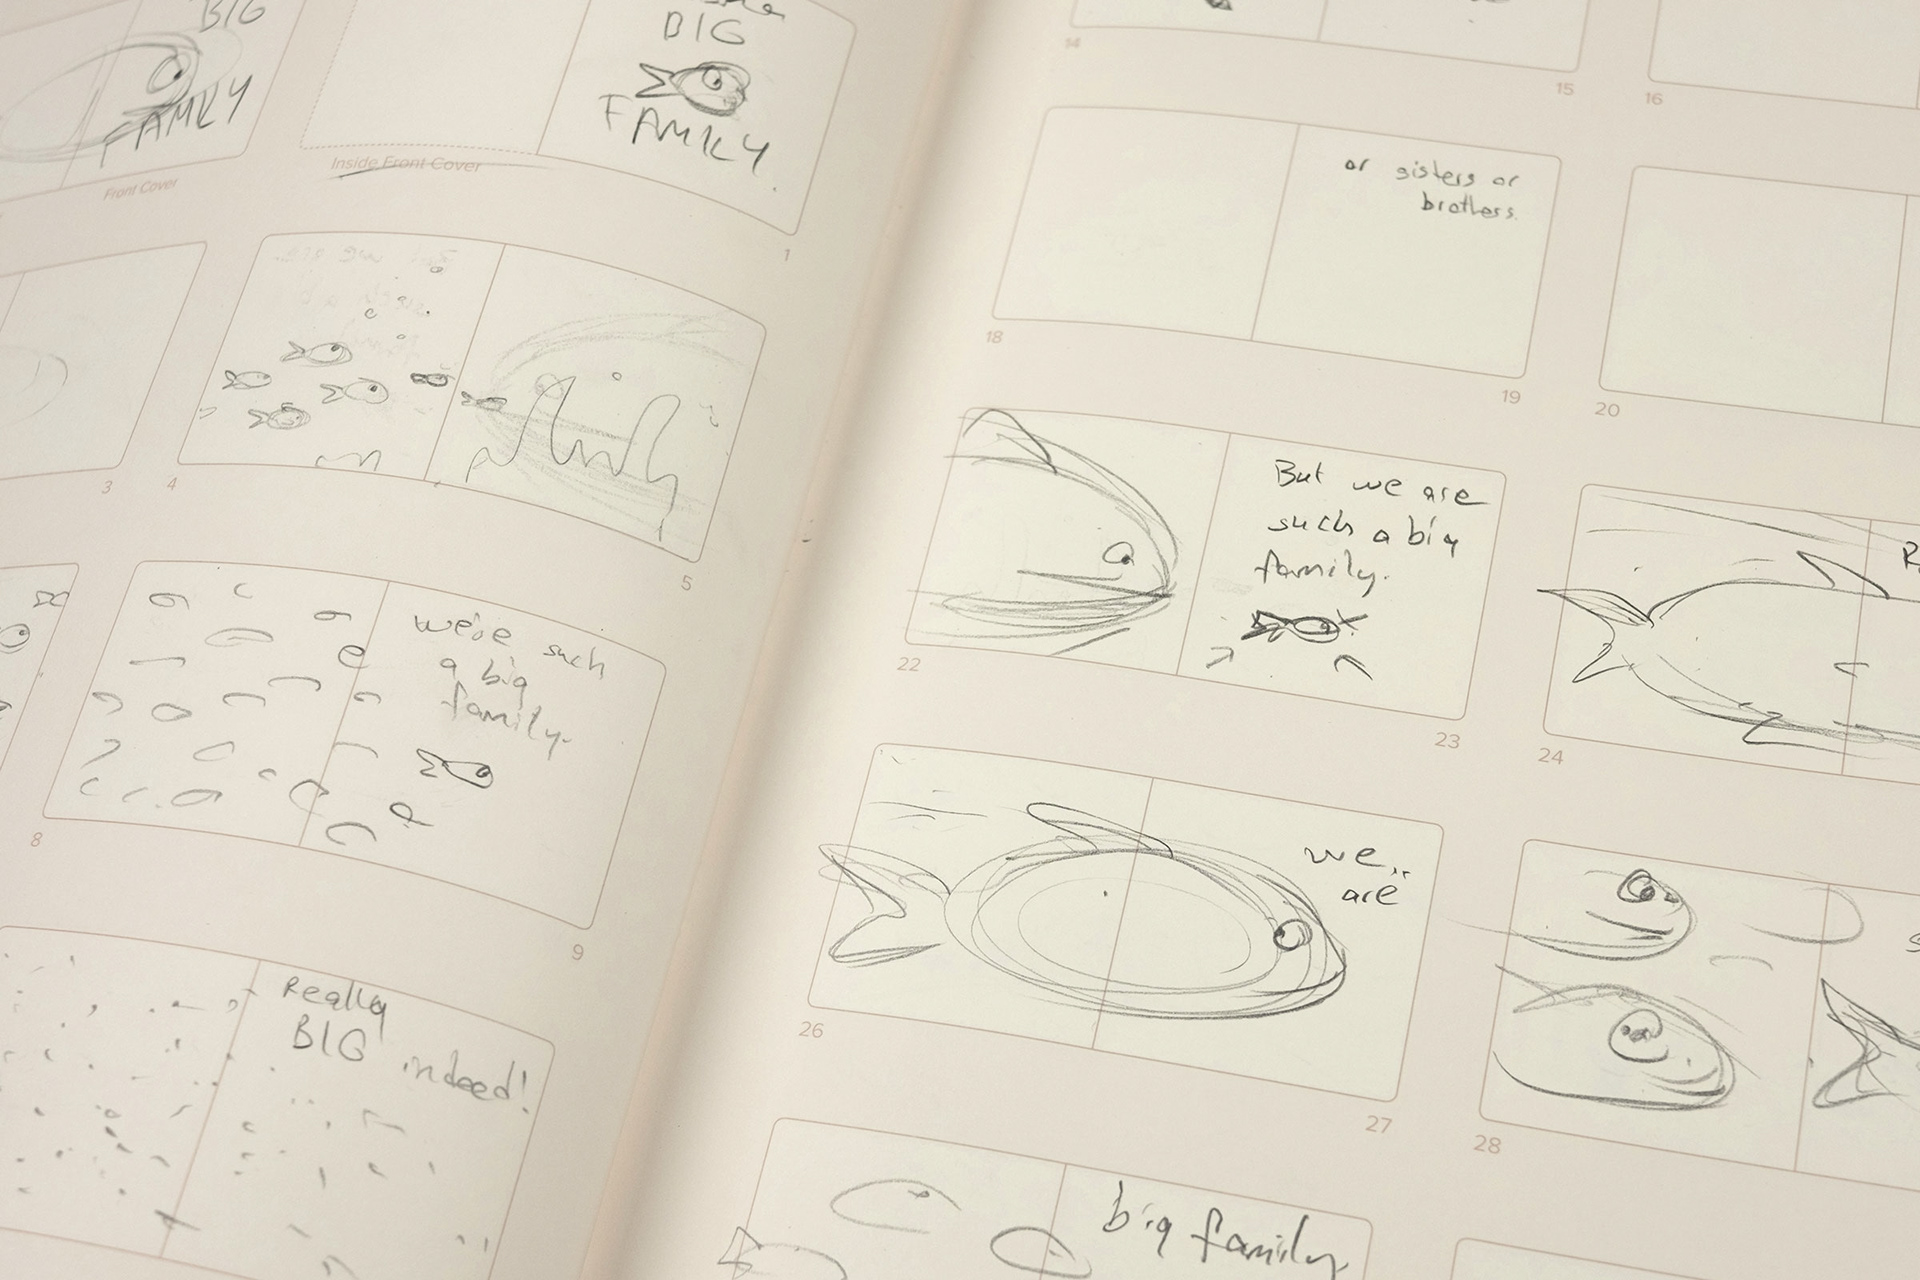 BIG
FAMILY
Front Cover
BIG
FAMILY.
Inside Front Cover
1
3
4
5
we're such
a big
family.
8
9
Really
BIG indeed!
14
15
16
or sisters or
brothers.
18
19
20
But we are
such a big
family.
22
23
24
we..
are
26
27
28
big family